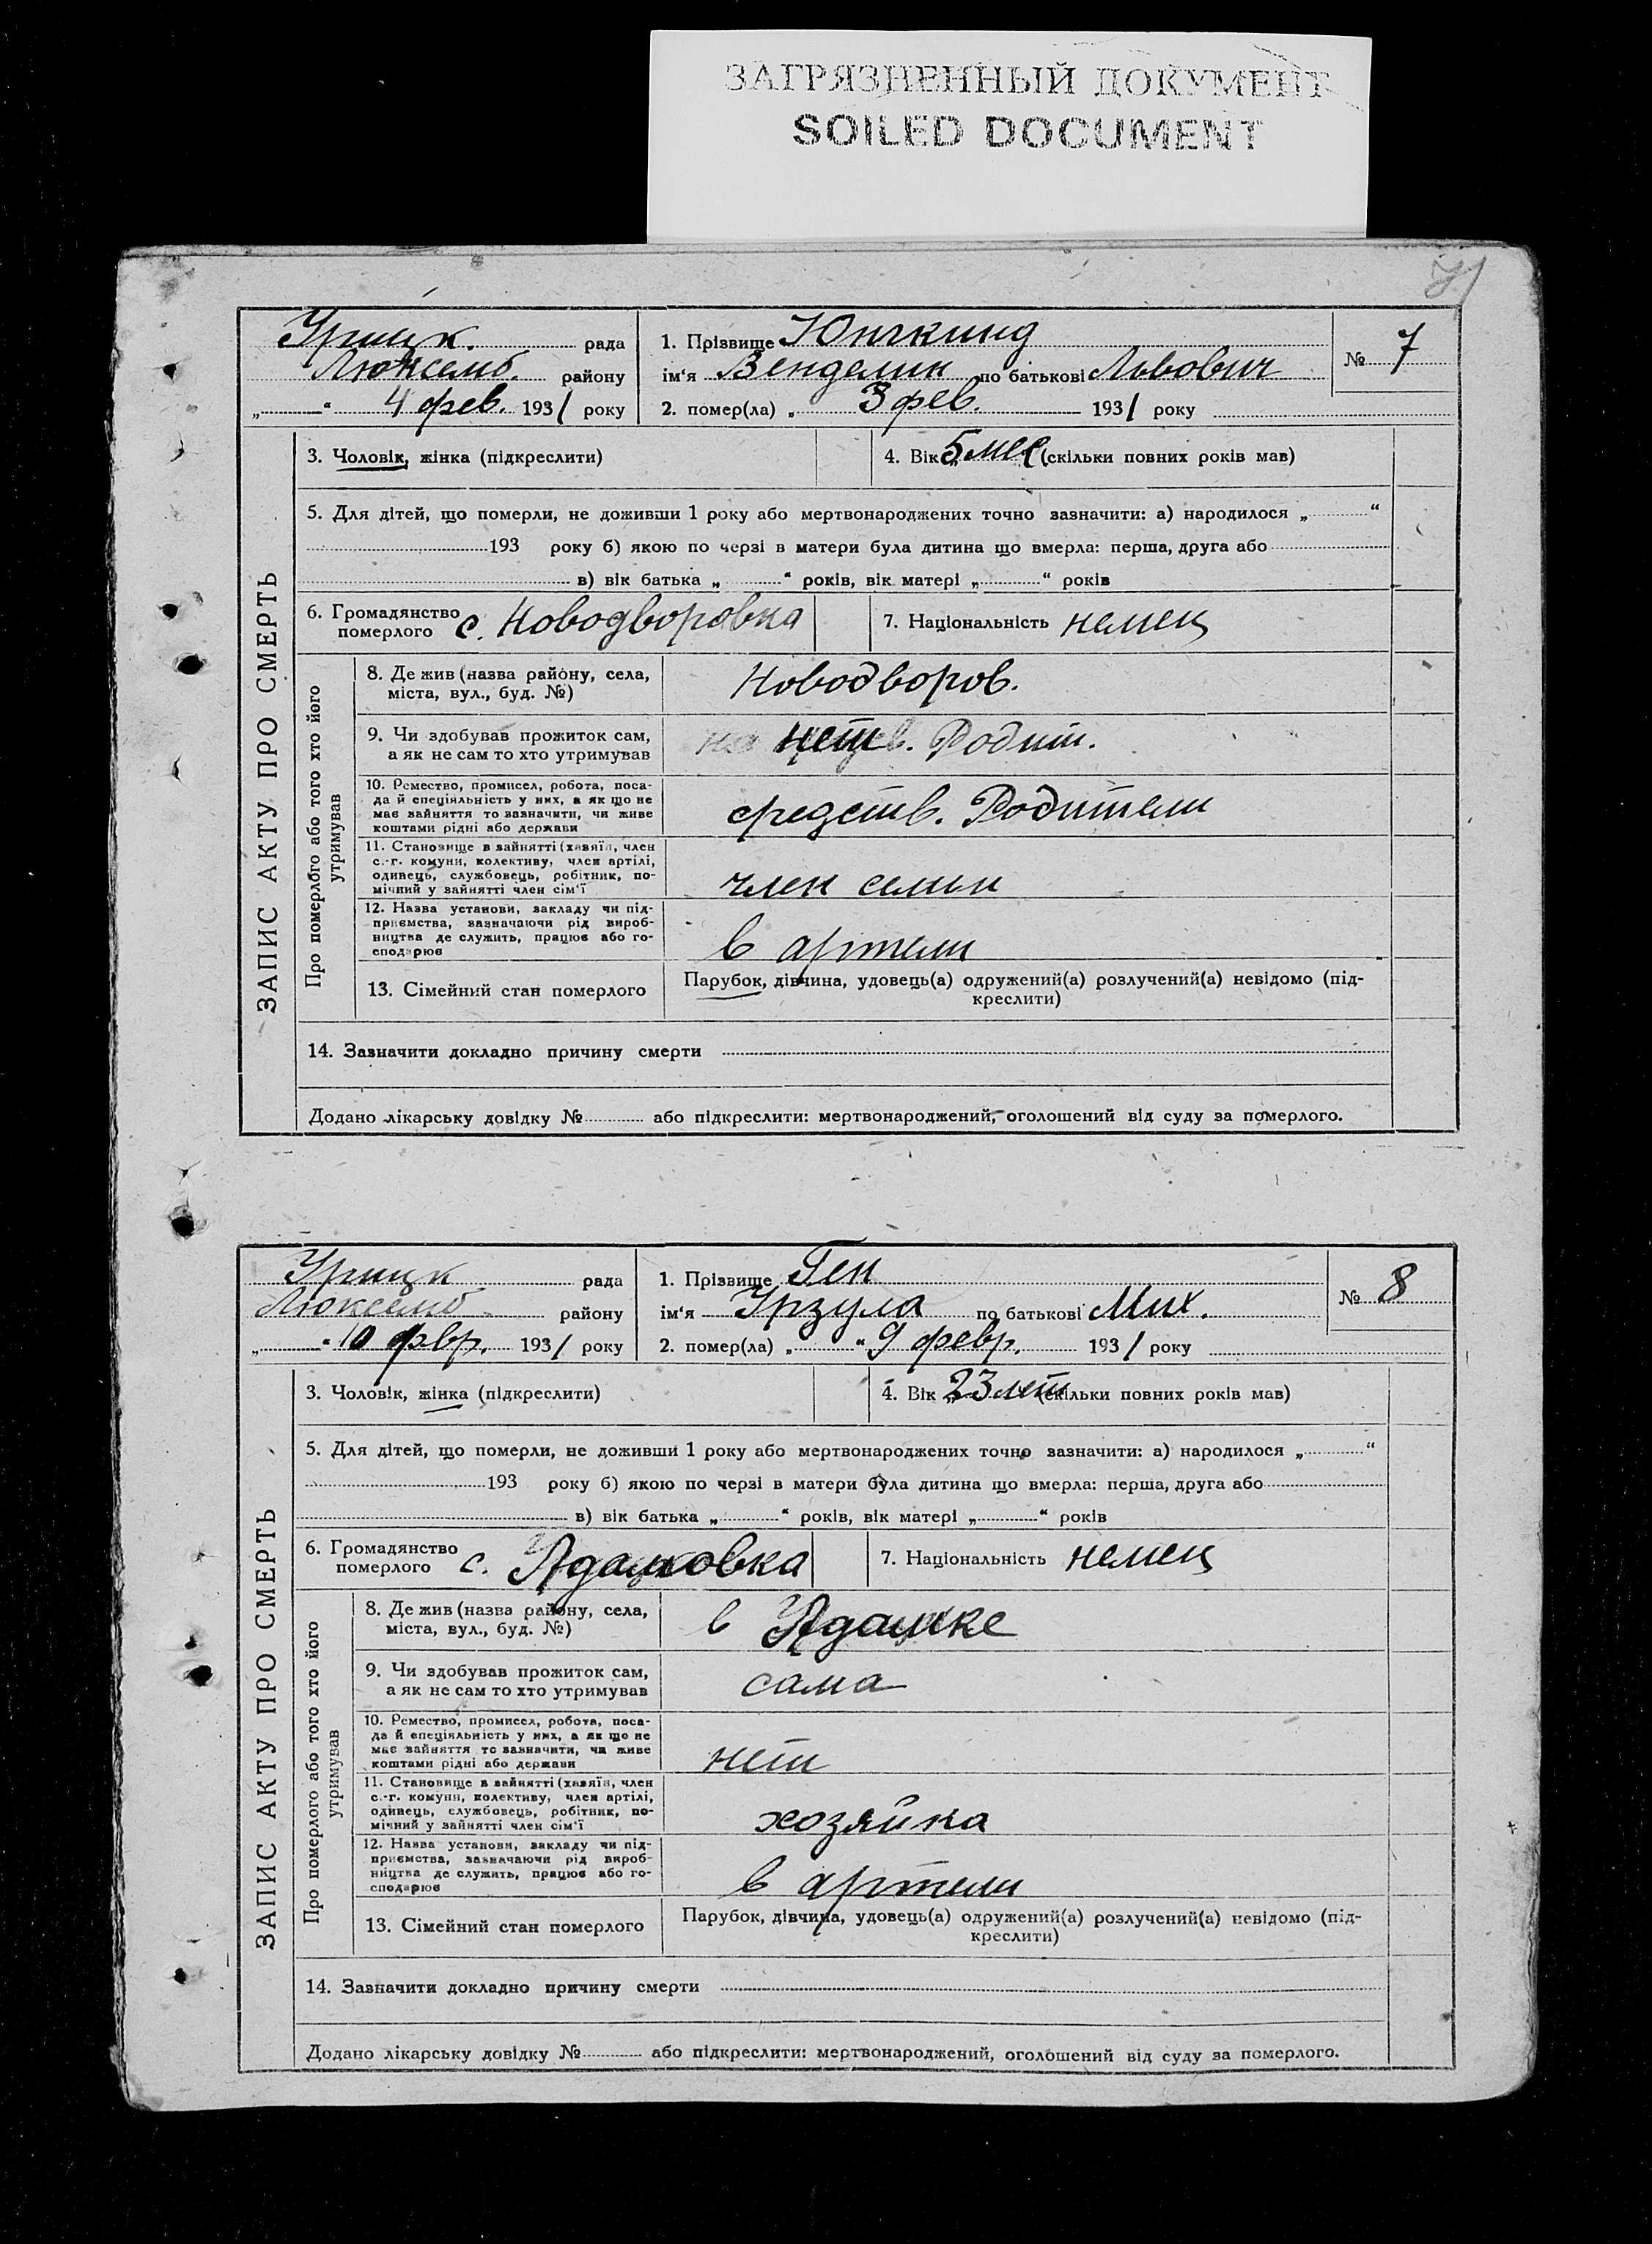 ЗАГРЯЗНЕННЫЙ ДОКУМЕНТ
SOILED DOCUMENT
71
Урицк. рада
Люксемб. району
„ “ 4 фев. 1931 року
1. Прізвище Юнгкинд
ім‘я Венделин по батькові Львович
2. помер(ла) „ 3 фев. 1931 року
№ 7
ЗАПИС АКТУ ПРО СМЕРТЬ
3. Чоловік, жінка (підкреслити)
4. Вік „5 мес (скільки повних років мав)
5. Для дітей, що померли, не доживши 1 року або мертвонароджених точно зазначити: а) народилося „ “
193 року б) якою по черзі в матери була дитина що вмерла: перша, друга або
в) вік батька „ “ років, вік матері „ “ років
6. Громадянство
померлого с. Новодворовка
7. Національність немец
Про померлого або того хто його
утримував
8. Де жив (назва району, села,
міста, вул., буд. №)
Новодворов.
9. Чи здобував прожиток сам,
а як не сам то хто утримував
на нет Родит.
10. Ремество, промисел, робота, поса-
да й спеціяльність у них, а як що не
має зайняття то зазначити, чи живе
коштами рідні або держави
средств. Родители
11. Становище в зайнятті (хазяїн, член
с.-г. комуни, колективу, член артілі,
одинець, службовець, робітник, по-
мічний у зайнятті член сім‘ї
член семьи
12. Назва установи, закладу чи під-
приємства, зазначаючи рід вироб-
ництва де служить, працює або го-
сподарює
в артели
13. Сімейний стан померлого
Парубок, дівчина, удовець(а) одружений(а) розлучений(а) невідомо (під-
креслити)
14. Зазначити докладно причину смерти
Додано лікарську довідку № або підкреслити: мертвонароджений, оголошений від суду за померлого.
Урицк рада
Люксемб району
„ “ 10 февр. 1931 року
1. Прізвище Ген
ім‘я Урзула по батькові Мих.
2. помер(ла) „ “ 9 февр. 1931 року
№ 8
ЗАПИС АКТУ ПРО СМЕРТЬ
3. Чоловік, жінка (підкреслити)
4. Вік „23 лет (скільки повних років мав)
5. Для дітей, що померли, не доживши 1 року або мертвонароджених точно зазначити: а) народилося „ “
193 року б) якою по черзі в матери була дитина що вмерла: перша, друга або
в) вік батька „ “ років, вік матері „ “ років
6. Громадянство
померлого с. Адамовка
7. Національність немец
Про померлого або того хто його
утримував
8. Де жив (назва району, села,
міста, вул., буд. №)
в Адамке
9. Чи здобував прожиток сам,
а як не сам то хто утримував
сама
10. Ремество, промисел, робота, поса-
да й спеціяльність у них, а як що не
має зайняття то зазначити, чи живе
коштами рідні або держави
нет
11. Становище в зайнятті (хазяїн, член
с.-г. комуни, колективу, член артілі,
одинець, службовець, робітник, по-
мічний у зайнятті член сім‘ї
хозяйка
12. Назва установи, закладу чи під-
приємства, зазначаючи рід вироб-
ництва де служить, працює або го-
сподарює
в артели
13. Сімейний стан померлого
Парубок, дівчина, удовець(а) одружений(а) розлучений(а) невідомо (під-
креслити)
14. Зазначити докладно причину смерти
Додано лікарську довідку № або підкреслити: мертвонароджений, оголошений від суду за померлого.